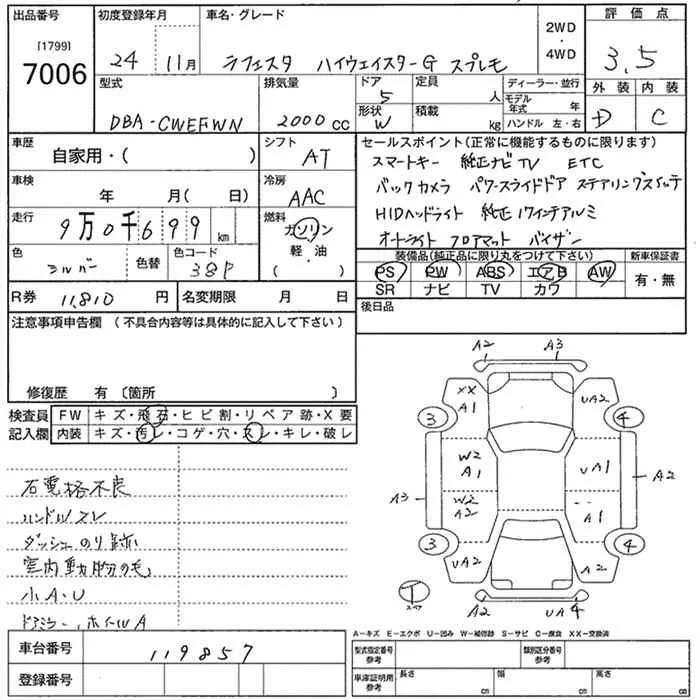 出品番号 初度登録年月 車名・グレード 2WD・4WD 評価点
[1799]
7006
24 11月 ラフェスタ ハイウェイスターG スプレモ 3.5
型式 排気量 ドア 定員 ディーラー・並行 外装 内装
DBA-CWEFWN 2000cc 5 人 モデル年式 年 D C
形状 積載 ハンドル 左・右
W kg
車歴 シフト セールスポイント(正常に機能するものに限ります)
自家用・( ) AT スマートキー 純正ナビTV ETC
車検 冷房 バックカメラ パワースライドドア ステアリングスイッチ
年 月( 日) AAC HIDヘッドライト 純正17インチアルミ
走行 燃料 オートライト フロアマット バイザー
9万0千699km ガソリン
軽・油
( )
色 色替 色コード 装備品(純正品に限り丸をつけて下さい) 新車保証書
シルバー 38P PS PW ABS エアB AW 有・無
SR ナビ TV カワ
R券 11,810円 名変期限 月 日 後日品
注意事項申告欄(不具合内容等は具体的に記入して下さい)
修復歴 有〔箇所 〕
検査員記入欄
FW キズ・飛石・ヒビ割・リペア跡・X要
内装 キズ・汚レ・コゲ・穴・スレ・キレ・破レ
ハンドルスレ
ダッシュのり跡
室内動物の毛
小A・U
ドアミラー、ホイールA
A2 A3
XX A1 UA2
3 4
W2 A1 UA1
A3 A2
W2 A2 A1
3 4
UA2 A2
T
スペア
A2 UA4
A-キズ E-エクボ U-凹み W-補修跡 S-サビ C-腐食 XX-交換済
車台番号 119857
型式指定番号 参考 類別区分番号 参考
登録番号
車庫証明用 参考 長さ cm 幅 cm 高さ cm